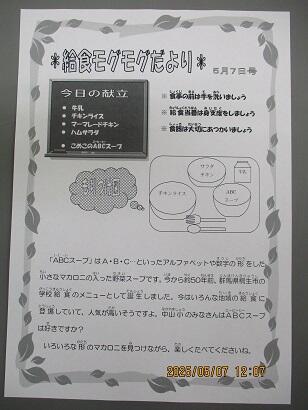 ＊給食モグモグだより＊
5月7日号
今日の献立
● 牛乳
● チキンライス
● マーマレードチキン
● ハムサラダ
● こめこのABCスープ
※ 食事の前は手を洗いましょう
※ 給食当番は身支度をしましょう
※ 食器は大切にあつかいましょう
サラダ
チキン
牛乳
チキンライス
ABC
スープ
「ABCスープ」はA・B・C…といったアルファベットや数字の形をした
小さなマカロニの入った野菜スープです。今から約50年前、群馬県桐生市の
学校給食のメニューとして誕生しました。今はいろんな地域の給食に
登場していて、人気が高いそうですよ。中山小のみなさんはABCスープ
は好きですか？
いろいろな形のマカロニを見つけながら、楽しくたべてくださいね。
2025/05/07 12:07